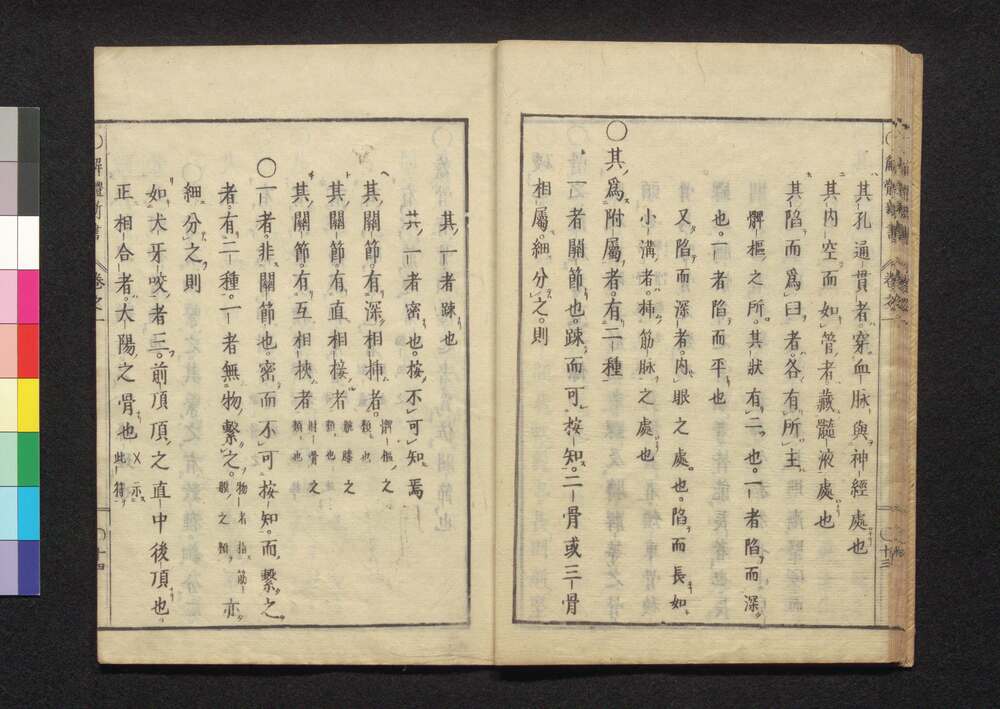 其孔通貫者穿血脉與神經處也
其内空而如管者藏髓液處也
其陷而爲臼者各有所主
髀樞之所其狀有二也一者陷而深
也一者陷而平也
又陷而深者内眼之處也陷而長如
小溝者挿筋脉之處也
○其爲附屬者有二種
一者關節也踈而可按知二骨或三骨
相屬細分之則
十三
其一者踈也
其一者密也按不可知焉
其關節有深相挿者髀樞之類也
其關節有直相接者之類也
其關節有互相挾者肘骨之類也
○一者非關節也密而不可按知而繫之
者有二種一者無物繫之物者指筋膜之類亦
細分之則
如犬牙咬者三前頂頂之直中後頂也
正相合者大陽之骨也示此符
解體新書 卷之一
十四